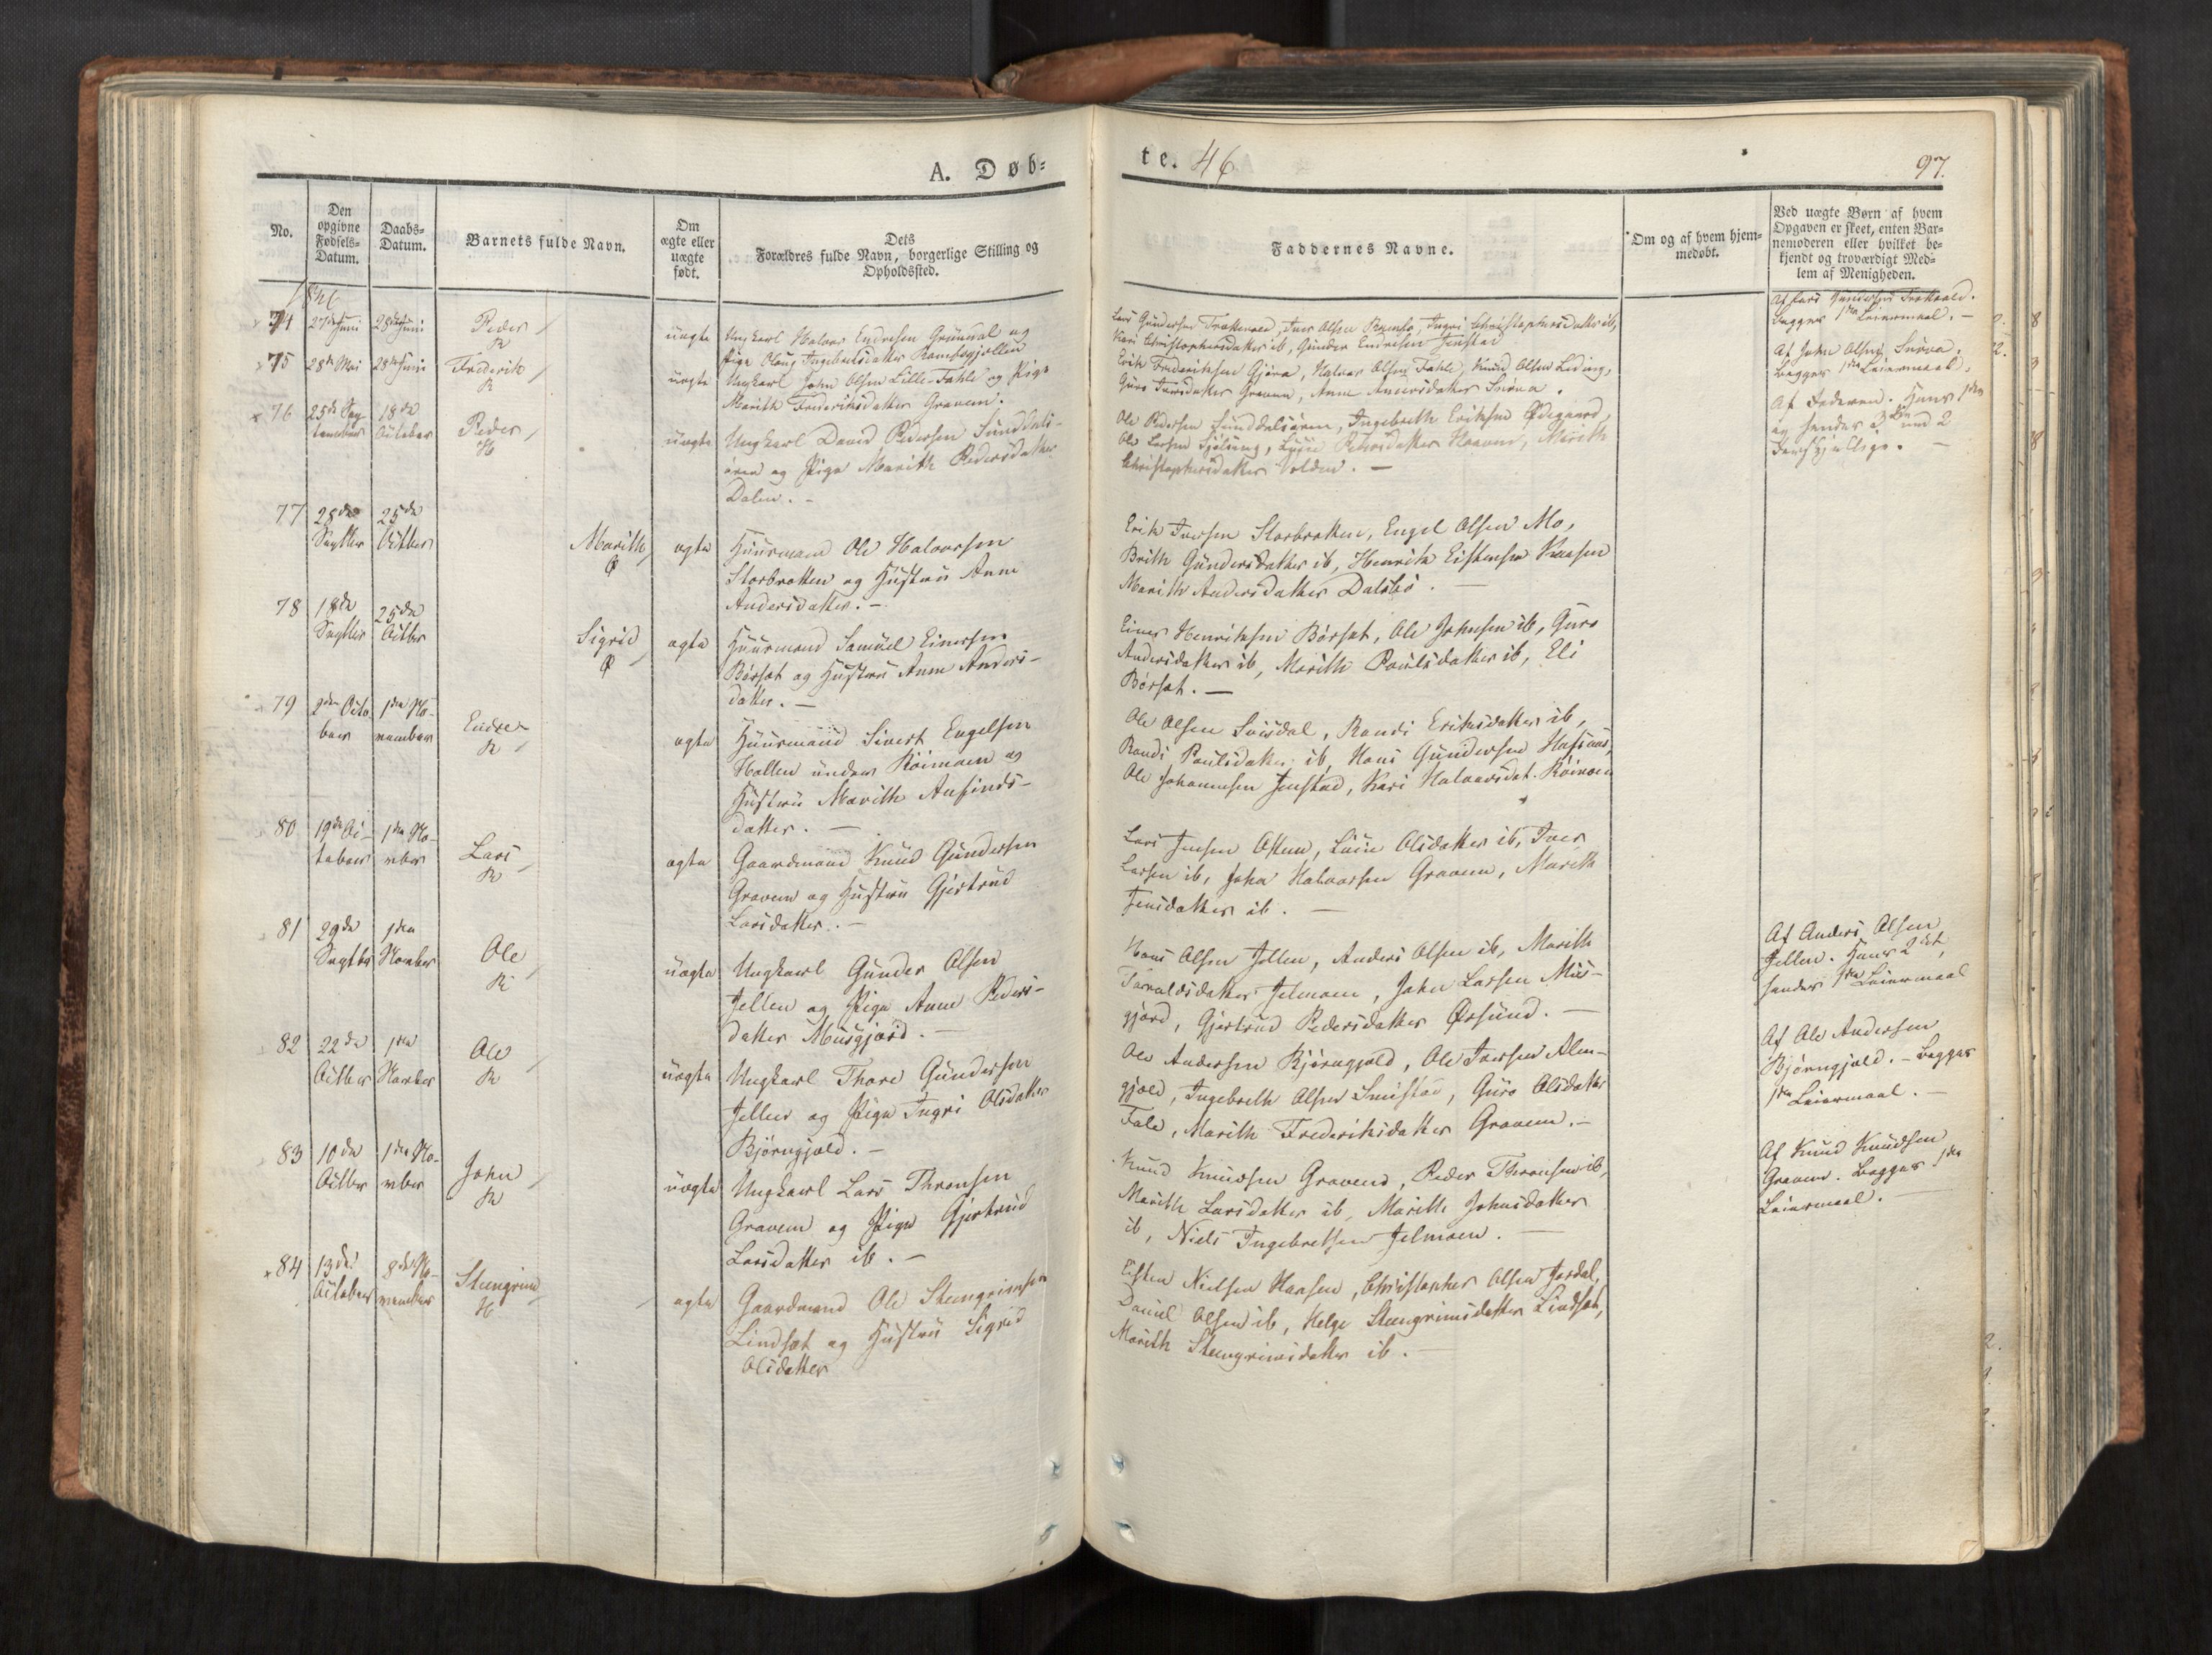 A. Døb=
te. 46
97.
No.
Den
opgivne
Fødsels=
Datum.
Daabs=
Datum.
Barnets fulde Navn.
Om
ægte eller
uægte
født.
Dets
Forældres fulde Navn, borgerlige Stilling og
Opholdssted.
Faddernes Navne.
Om og af hvem hjem=
medøbt.
Ved uægte Børn af hvem
Opgaven er skeet, enten Bar=
nemoderen eller hvilket be=
kjendt og troværdigt Med=
lem af Menigheden.
1846
74 27de Juni 28de Juni Peder uægte Ungkarl Halvor Endresen Grønndal og
Pige Olaug Ingebretsdatter
Lars Gundersen, Iver Olsen, Ingri Christophersdatter ib,
Kari Christophersdatter ib, Gunder Endresen Jenstad
Af Lars Gundersen
begges 1ste Leiermaal. -
75 28de Mai 28de Juni Frederik uægte Ungkarl John Olsen Lille-Fahle og Pige
Marith Frederiksdatter Gravem.
Erik Frederiksen Gjøra, Halvor Olsen Fahle, Knud Olsen
Guro Iversdatter Gravem, Anne Andersdatter
Af John Olsen
begges 1ste Leiermaal.
76 25de Sep-
tember 18de
October Peder
H uægte Ungkarl David Pedersen Sunddals-
øren og Pige Marith Pedersdatter
Dalen. -
Ole Pedersen Sunddalsøren, Ingebreth Eriksen Ødegaard,
Ole Larsen, Marith
Christophersdatter Volden. -
Af Faderen. Hans 1ste
og hendes 3die med 2
forskjellige. -
77 28de
Septbr 25de
Octber Marith ægte Huusmand Ole Halvorsen
Storbrotten og Hustru Anne
Andersdatter. -
Erik Iversen Storbrotten, Engel Olsen Mo,
Brith Gundersdatter ib, Henrik Eistensen
Marith Andersdatter Dalsbø. -
78 18de
Septbr 25de
Octbr Sigrid ægte Huusmand Samuel Einersen
Børset og Hustru Anne Anders-
datter. -
Einer Henriksen Børset, Ole Johnsen ib, Guro
Andersdatter ib, Marith Poulsdatter ib, Eli
Børset. -
79 2den Octo
ber 1ste No-
vember Endre
R ægte Huusmand Sivert Engelsen
Hallen under Röimoen og
Hustru Marith Anfinds-
datter. -
Ole Olsen Svisdal, Randi Eriksdatter ib,
Randi Poulsdatter ib, Hans Gundersen Hafsaas,
Ole Johannesen Jenstad, Kari Halvorsdat. Röimoen
80 19de Oc-
tober 1ste No-
vber Lars
R ægte Gaardmand Knud Gundersen
Gravem og Hustru Gjertrud
Larsdatter. -
Lars Jensen Ottem, Olsdatter ib, Iver
Larsen ib, John Halvorsen Gravem, Marith
Jensdatter ib. -
81 29de
Septbr 1ste
Novber Ole
R uægte Ungkarl Gunder Olsen
Jellen og Pige Anne Peders-
datter Musgjærd. -
Hans Olsen Jellen, Anders Olsen ib, Marith
Toraldsdatter Jelmoen, John Larsen Mus-
gjærd, Gjertrud Pedersdatter Ørsund. -
Af Anders Olsen
Jellen. Hans 2det,
hendes 1ste Leiermaal
82 22de
Octber 1ste
Novber Ole
R uægte Ungkarl Thore Gundersen
Jellen og Pige Ingri Olsdatter
Bjørngjæld. -
Ole Andersen Bjørngjæld, Ole Iversen Alm-
gjæld, Ingebreth Olsen Smistad, Guro Olsdatter
Fale, Marith Frederiksdatter Gravem. -
Af Ole Andersen
Bjørngjæld. - Begges
1ste Leiermaal. -
83 10de
Octber 1ste No-
vber John
R uægte Ungkarl Lars Thronsen
Gravem og Pige Gjertrud
Larsdatter ib. -
Knud Knudsen Gravem, Peder Thronsen ib,
Marith Larsdatter ib, Marith Johnsdatter
ib, Niels Ingebretsen Jelmoen. -
Af Knud Knudsen
Gravem. Begges 1ste
Leiermaal. -
84 13de
October 8de No-
vember Steengrim
H ægte Gaardmand Ole Steengrimsen
Lindset og Hustru Sigrid
Olsdatter
Eisten Nielsen Hansen, Christopher Olsen Jordal,
Daniel Olsen ib, Helge Steengrimsdatter Lindset,
Marith Steengrimsdatter ib. -